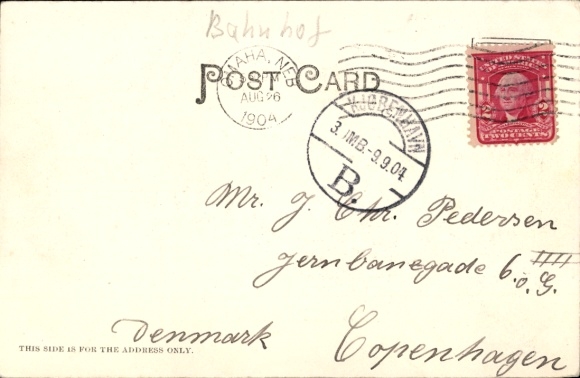 Bahnhof
OMAHA, NEB.
AUG 26
1904
POST CARD
KJØBENHAVN
3. OMB. - 9.9.04
B.
UNITED STATES
OF AMERICA
2 2
POSTAGE
TWO CENTS
Mr. J. Chr. Pedersen
Jernbanegade 6.
o. G.
Denmark
Copenhagen
THIS SIDE IS FOR THE ADDRESS ONLY.